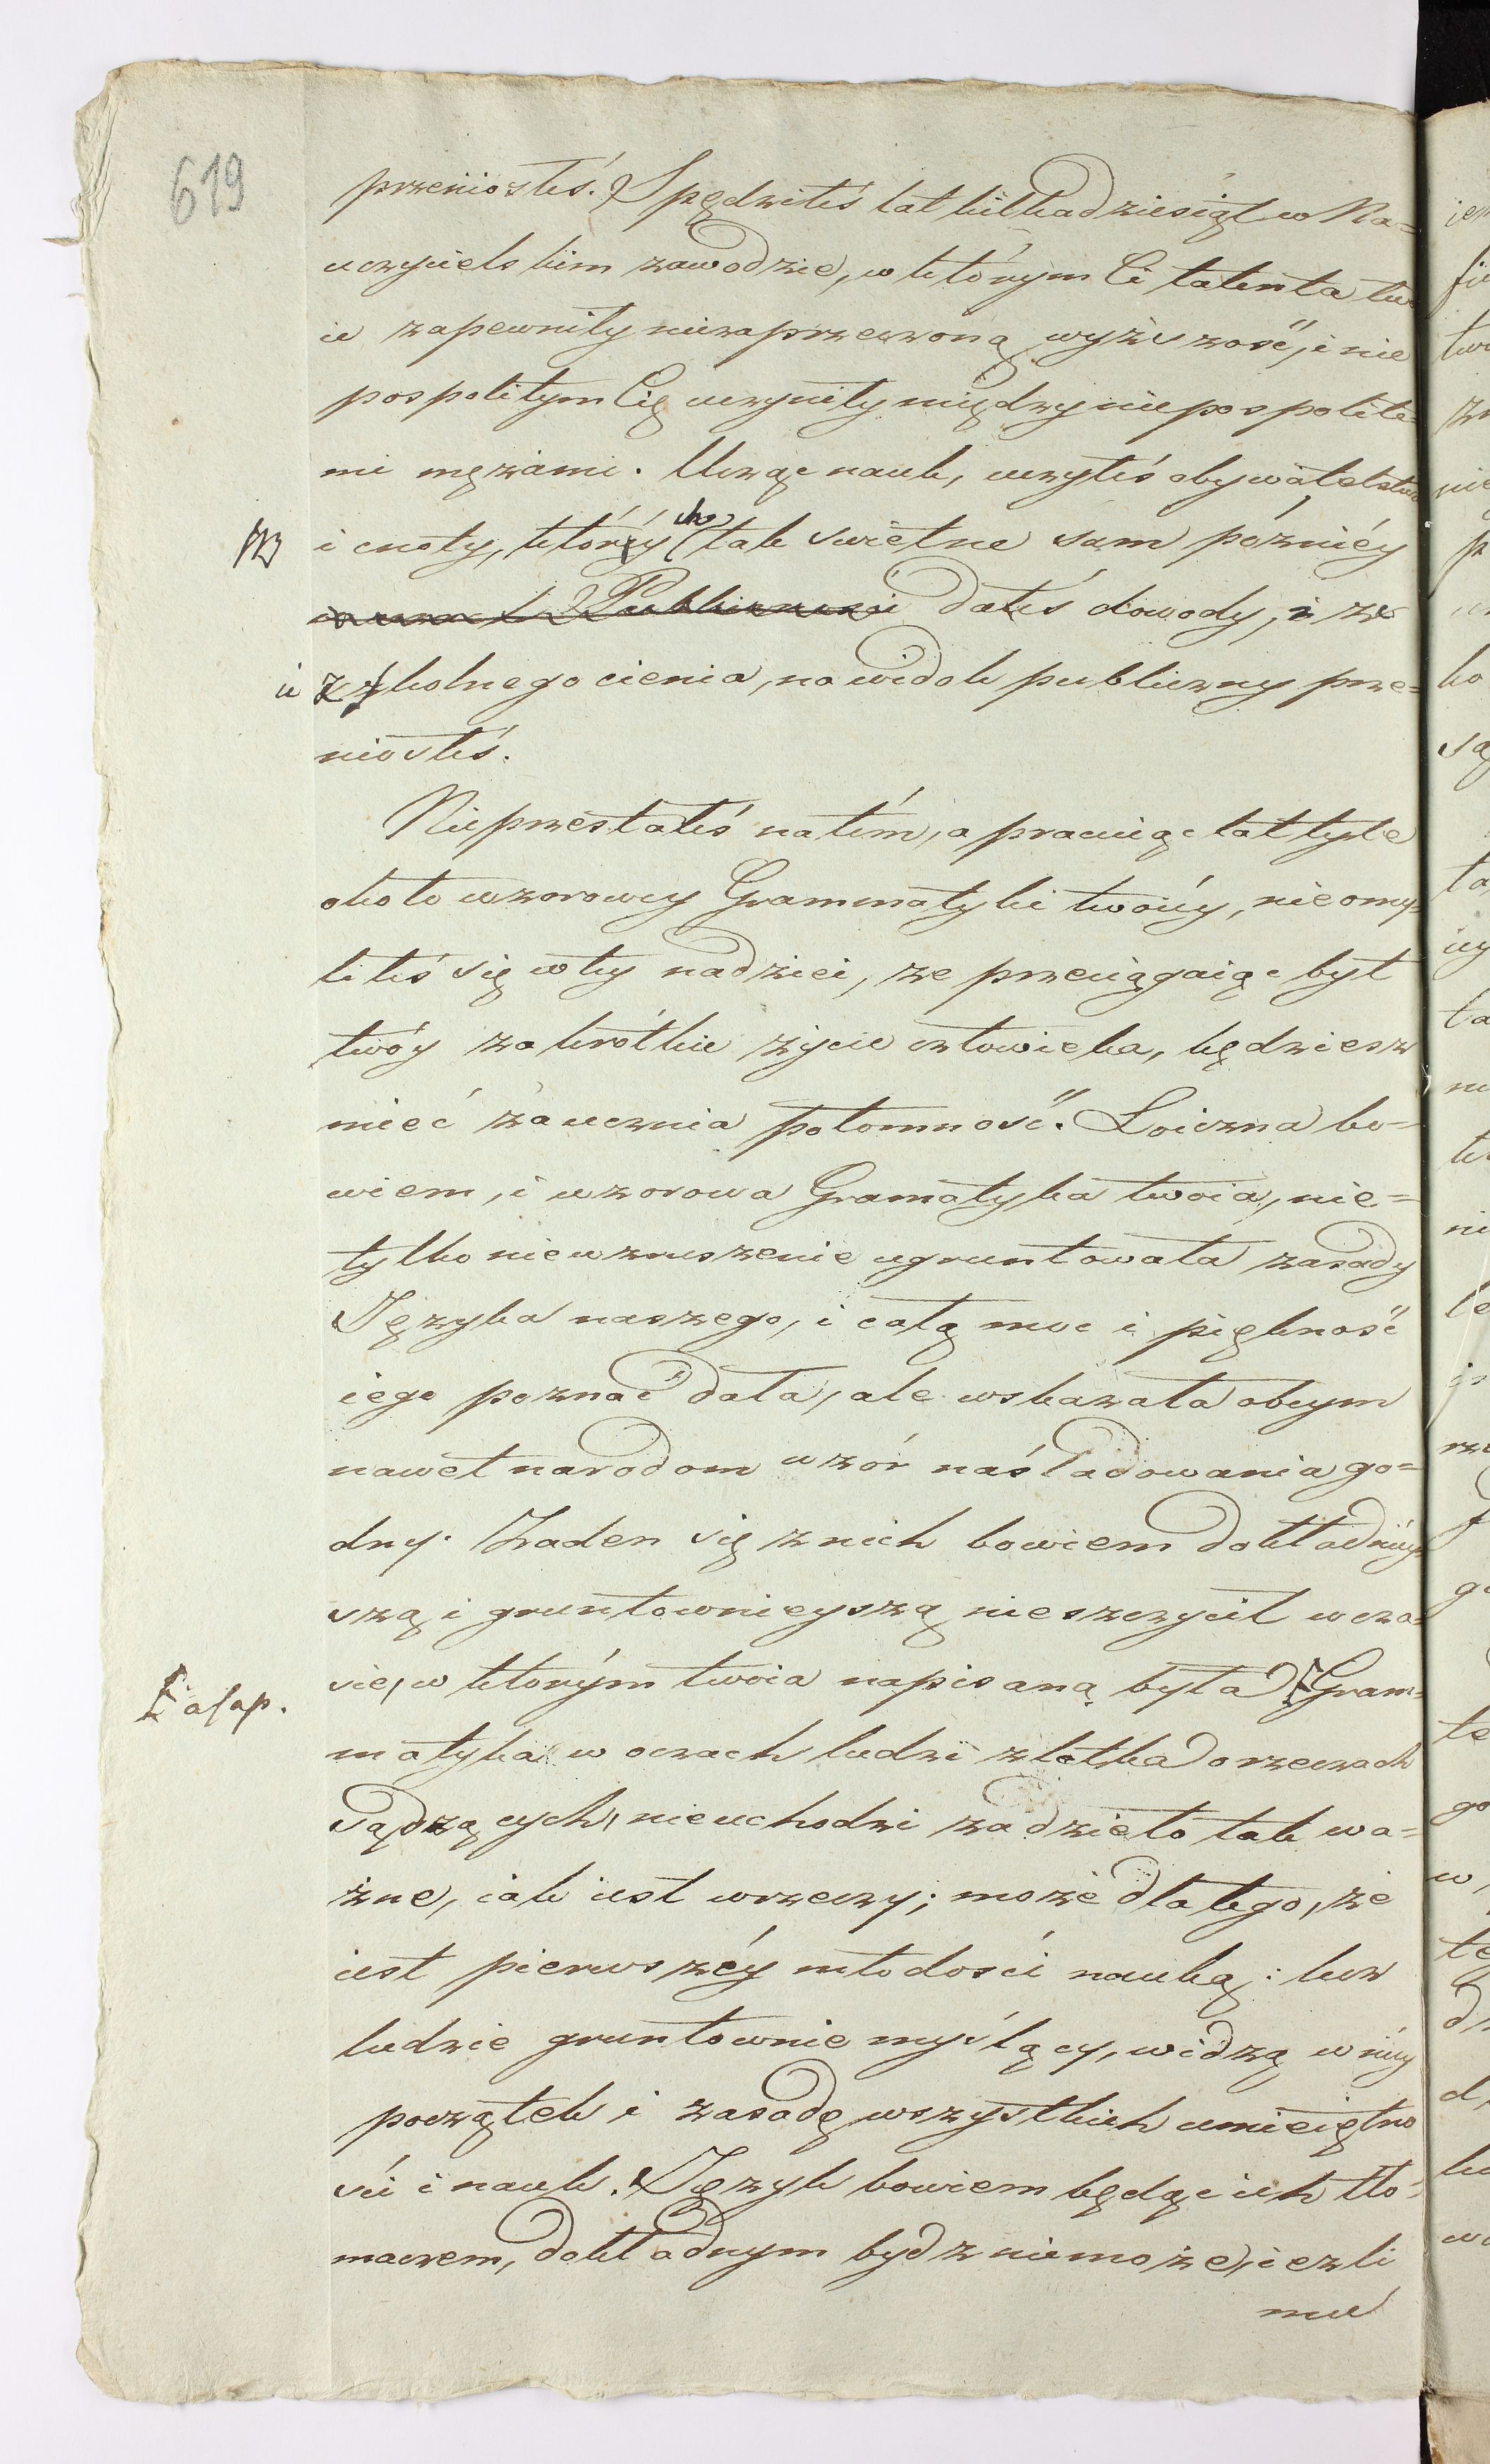 619
przeniosłeś. Spędziłeś lat kilkadziesiąt w Na=
uczycielskim zawodzie, w którym Ci talenta two
ie zapewniły niezaprzeczoną wyższość, i nie
pospolitym Cię uczyniły między niepospolite=
mi mężami. Ucząc nauk, uczyłeś obywatelstwa
i cnoty, których tak świetne sam późniéy
Publiczności dałeś dowody, i że
ie z szkolnego cienia, na widok publiczny prze=
niosłeś.
Nieprzestałeś na tém, a pracuiąc lat tyle
około wzorowey Grammatyki twoiéy, nie omy=
liłeś się w téy nadziei, że przeciągaiąc byt
twóy za krótkie życie człowieka, będziesz
mieć za ucznia potomność. Loiczna bo=
wiem, i wzorowa Gramatyka twoia, nie=
tylko niewzruszenie ugruntowała zasady
Języka naszego, i całą moc i piękność
iego poznać dała, ale wskazała obcym
nawet narodom wzór naśladowania go=
dny. Żaden się z nich bowiem dokładniéy
szą i gruntownieyszą nieszczycił w cza=
sie, w którym twoia napisaną była Gram=
a cap.
matyka w oczach ludzi zlekka o rzeczach
sądzących, nieuchodzi za dzieło tak wa=
żne, iak iest w rzeczy; może dla tego, że
iest pierwszéy młodości nauką: lecz
ludzie gruntownie myślący, widzą w niéy
początek i zasadę wszystkich umieiętno
ści i nauk. Język bowiem będąc ich tło=
maczem, dokładnym bydź niemoże, ieżli
mu